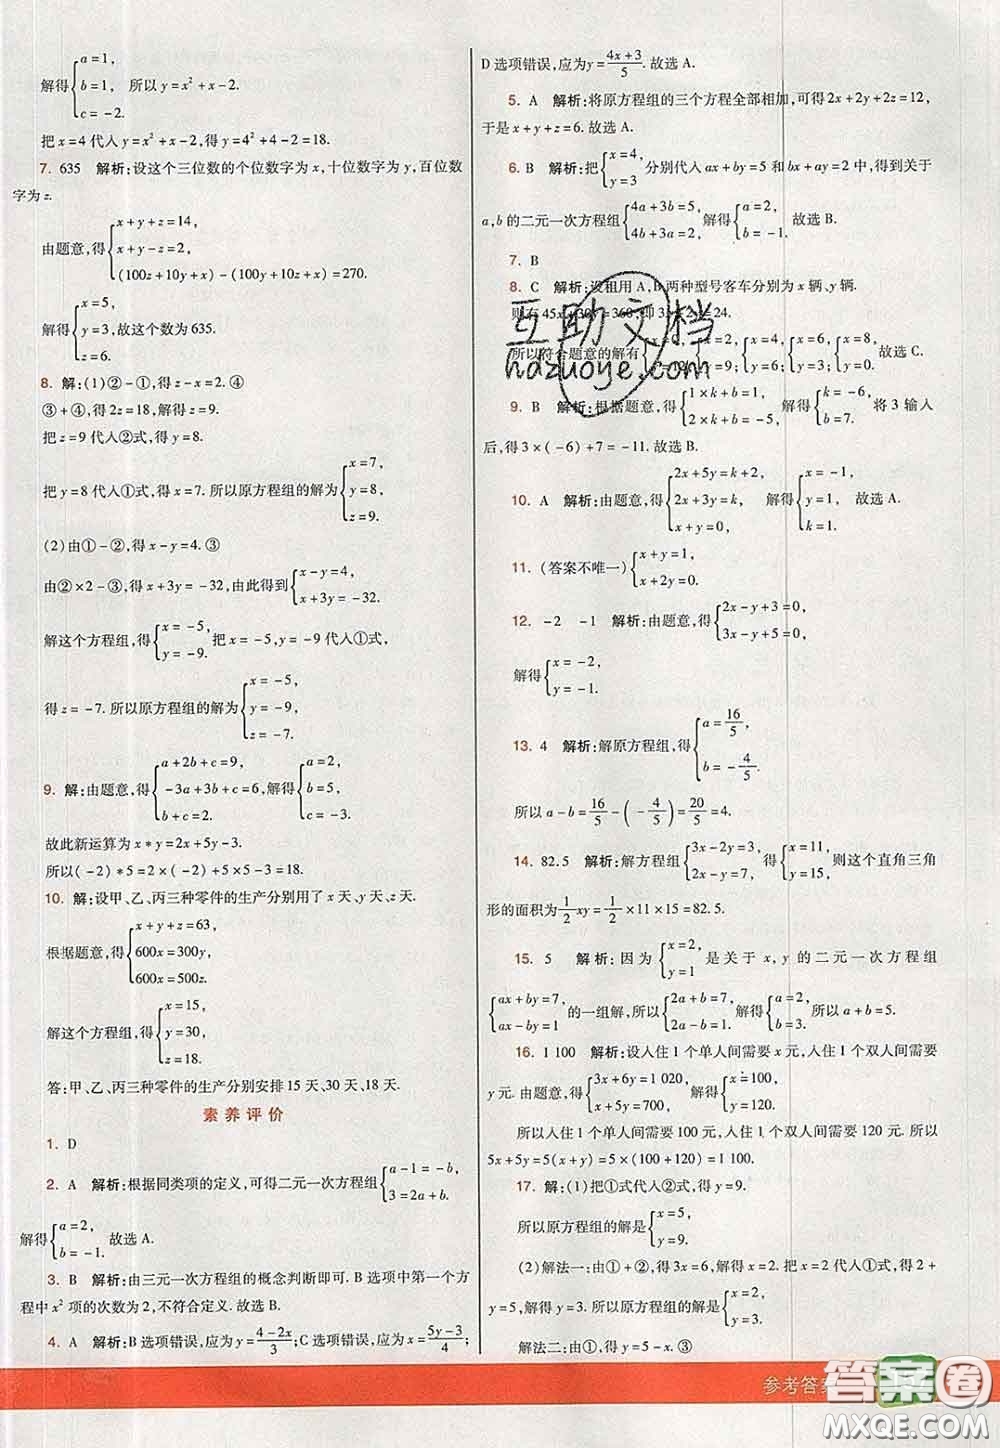 解得{a=1, b=1, c=-2. 所以 y=x²+x-2.
把 x=4 代入 y=x²+x-2,得 y=4²+4-2=18.
7. 635 解析:设这个三位数的个位数字为 x,十位数字为 y,百位数
字为 z.
由题意,得{x+y+z=14, x+y-z=2, (100z+10y+x)-(100x+10y+z)=270.
解得{x=5, y=3, z=6. 故这个数为 635.
8. 解:(1)②-①,得 z-x=2. ④
③+④,得 2z=18,解得 z=9.
把 z=9 代入②式,得 y=8.
把 y=8 代入①式,得 x=7. 所以原方程组的解为{x=7, y=8, z=9.
(2)由①-②,得 x-y=4. ③
由②×2-③,得 x+3y=-32,由此得到{x-y=4, x+3y=-32.
解这个方程组,得{x=-5, y=-9. 把 x=-5,y=-9 代入①式,
得 z=-7. 所以原方程组的解为{x=-5, y=-9, z=-7.
9. 解:由题意,得{a+2b+c=9, -3a+3b+c=6, b+c=2. 解得{a=2, b=5, c=-3.
故此新运算为 x*y=2x+5y-3.
所以(-2)*5=2×(-2)+5×5-3=18.
10. 解:设甲、乙、丙三种零件的生产分别用了 x 天、y 天、z 天.
根据题意,得{x+y+z=63, 600x=300y, 600x=500z.
解这个方程组,得{x=15, y=30, z=18.
答:甲、乙、丙三种零件的生产分别安排 15 天、30 天、18 天.
素养评价
1. D
2. A 解析:根据同类项的定义,可得二元一次方程组{a-1=-b, 3=2a+b.
解得{a=2, b=-1. 故选 A.
3. B 解析:由三元一次方程组的概念判断即可. B 选项中第一个方
程中 x² 项的次数为 2,不符合定义. 故选 B.
4. A 解析:B 选项错误,应为 y=(4-2x)/3;C 选项错误,应为 x=(5y-3)/4;
D 选项错误,应为 y=(4x+3)/5. 故选 A.
5. A 解析:将原方程组的三个方程全部相加,可得 2x+2y+2z=12,
于是 x+y+z=6. 故选 A.
6. B 解析:把{x=4, y=3 分别代入 ax+by=5 和 bx+ay=2 中,得到关于
a,b 的二元一次方程组{4a+3b=5, 4b+3a=2. 解得{a=2, b=-1. 故选 B.
7. B
8. C 解析:设租用 A,B 两种型号客车分别为 x 辆、y 辆.
则有 45x+30y=360,即 3x+2y=24.
所以符合题意的解有 x=2, y=9; {x=4, y=6; {x=6, y=3; {x=8, y=0. 故选 C.
9. B 解析:根据题意,得{1×k+b=1, 2×k+b=-5, 解得{k=-6, b=7. 将 3 输入
后,得 3×(-6)+7=-11. 故选 B.
10. A 解析:由题意,得{2x+5y=k+2, 2x+3y=k, x+y=0, 解得{x=-1, y=1, k=1. 故选 A.
11. (答案不唯一){x+y=1, x+2y=0.
12. -2 -1 解析:由题意,得{2x-y+3=0, 3x-y+5=0.
解得{x=-2, y=-1.
13. 4 解析:解原方程组,得{a=16/5, b=-4/5.
所以 a-b=16/5-(-4/5)=20/5=4.
14. 82.5 解析:解方程组{3x-2y=3, 2x-y=7, 得{x=11, y=15. 则这个直角三角
形的面积为 1/2 xy=1/2×11×15=82.5.
15. 5 解析:因为{x=2, y=1 是关于 x,y 的二元一次方程组
{ax+by=7, ax-by=1 的一组解,所以{2a+b=7, 2a-b=1. 解得{a=2, b=3. 所以 a+b=5.
16. 1 100 解析:设入住 1 个单人间需要 x 元,入住 1 个双人间需要
y 元. 由题意,得{3x+6y=1 020, x+5y=700, 解得{x=100, y=120.
所以入住 1 个单人间需要 100 元,入住 1 个双人间需要 120 元. 所以
5x+5y=5(x+y)=5×(100+120)=1 100.
17. 解:(1)把①式代入②式,得 y=9.
所以原方程组的解是{x=5, y=9.
(2)解法一:由①+②,得 3x=6,解得 x=2. 把 x=2 代入①式,得 2+
y=5,解得 y=3. 所以原方程组的解是{x=2, y=3.
解法二:由①,得 y=5-x. ③
参考答案
互助文档
hdzuoye.com
答案圈
MXQE.COM